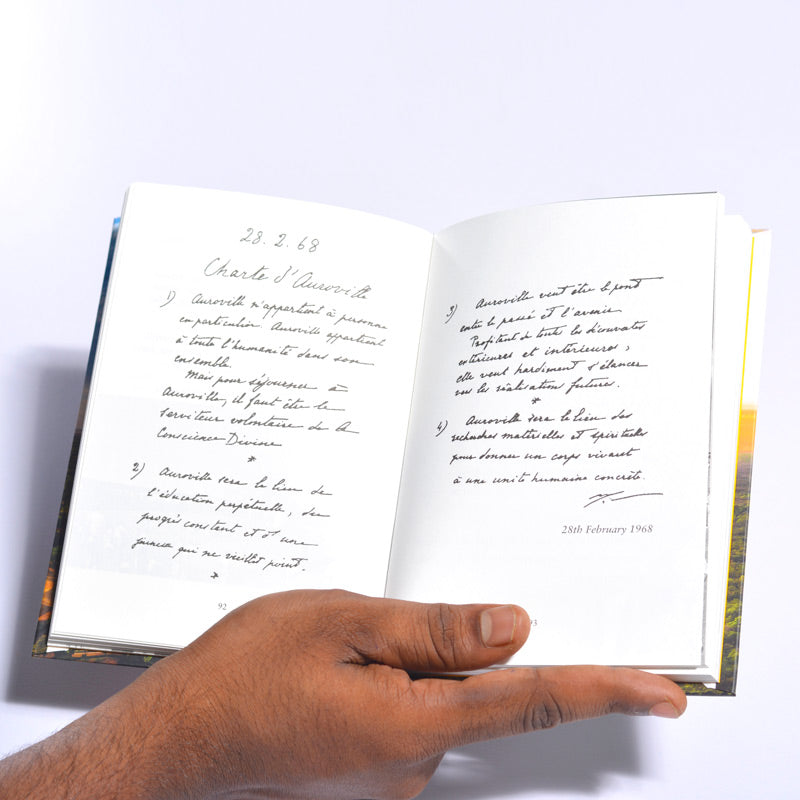 28. 2. 68
Charte d'Auroville
1) Auroville n'appartient à personne
en particulier. Auroville appartient
à toute l'humanité dans son
ensemble.
Mais pour séjourner à
Auroville, il faut être le
serviteur volontaire de la
Conscience Divine
*
2) Auroville sera le lieu de
l'éducation perpétuelle, du
progrès constant et d'une
jeunesse qui ne vieillit point.
*
92
3) Auroville veut être le pont
entre le passé et l'avenir
Profitant de toutes les découvertes
extérieures et intérieures,
elle veut hardiment s'élancer
vers les réalisations futures.
*
4) Auroville sera le lieu des
recherches matérielles et spirituelles
pour donner un corps vivant
à une unité humaine concrète.
28th February 1968